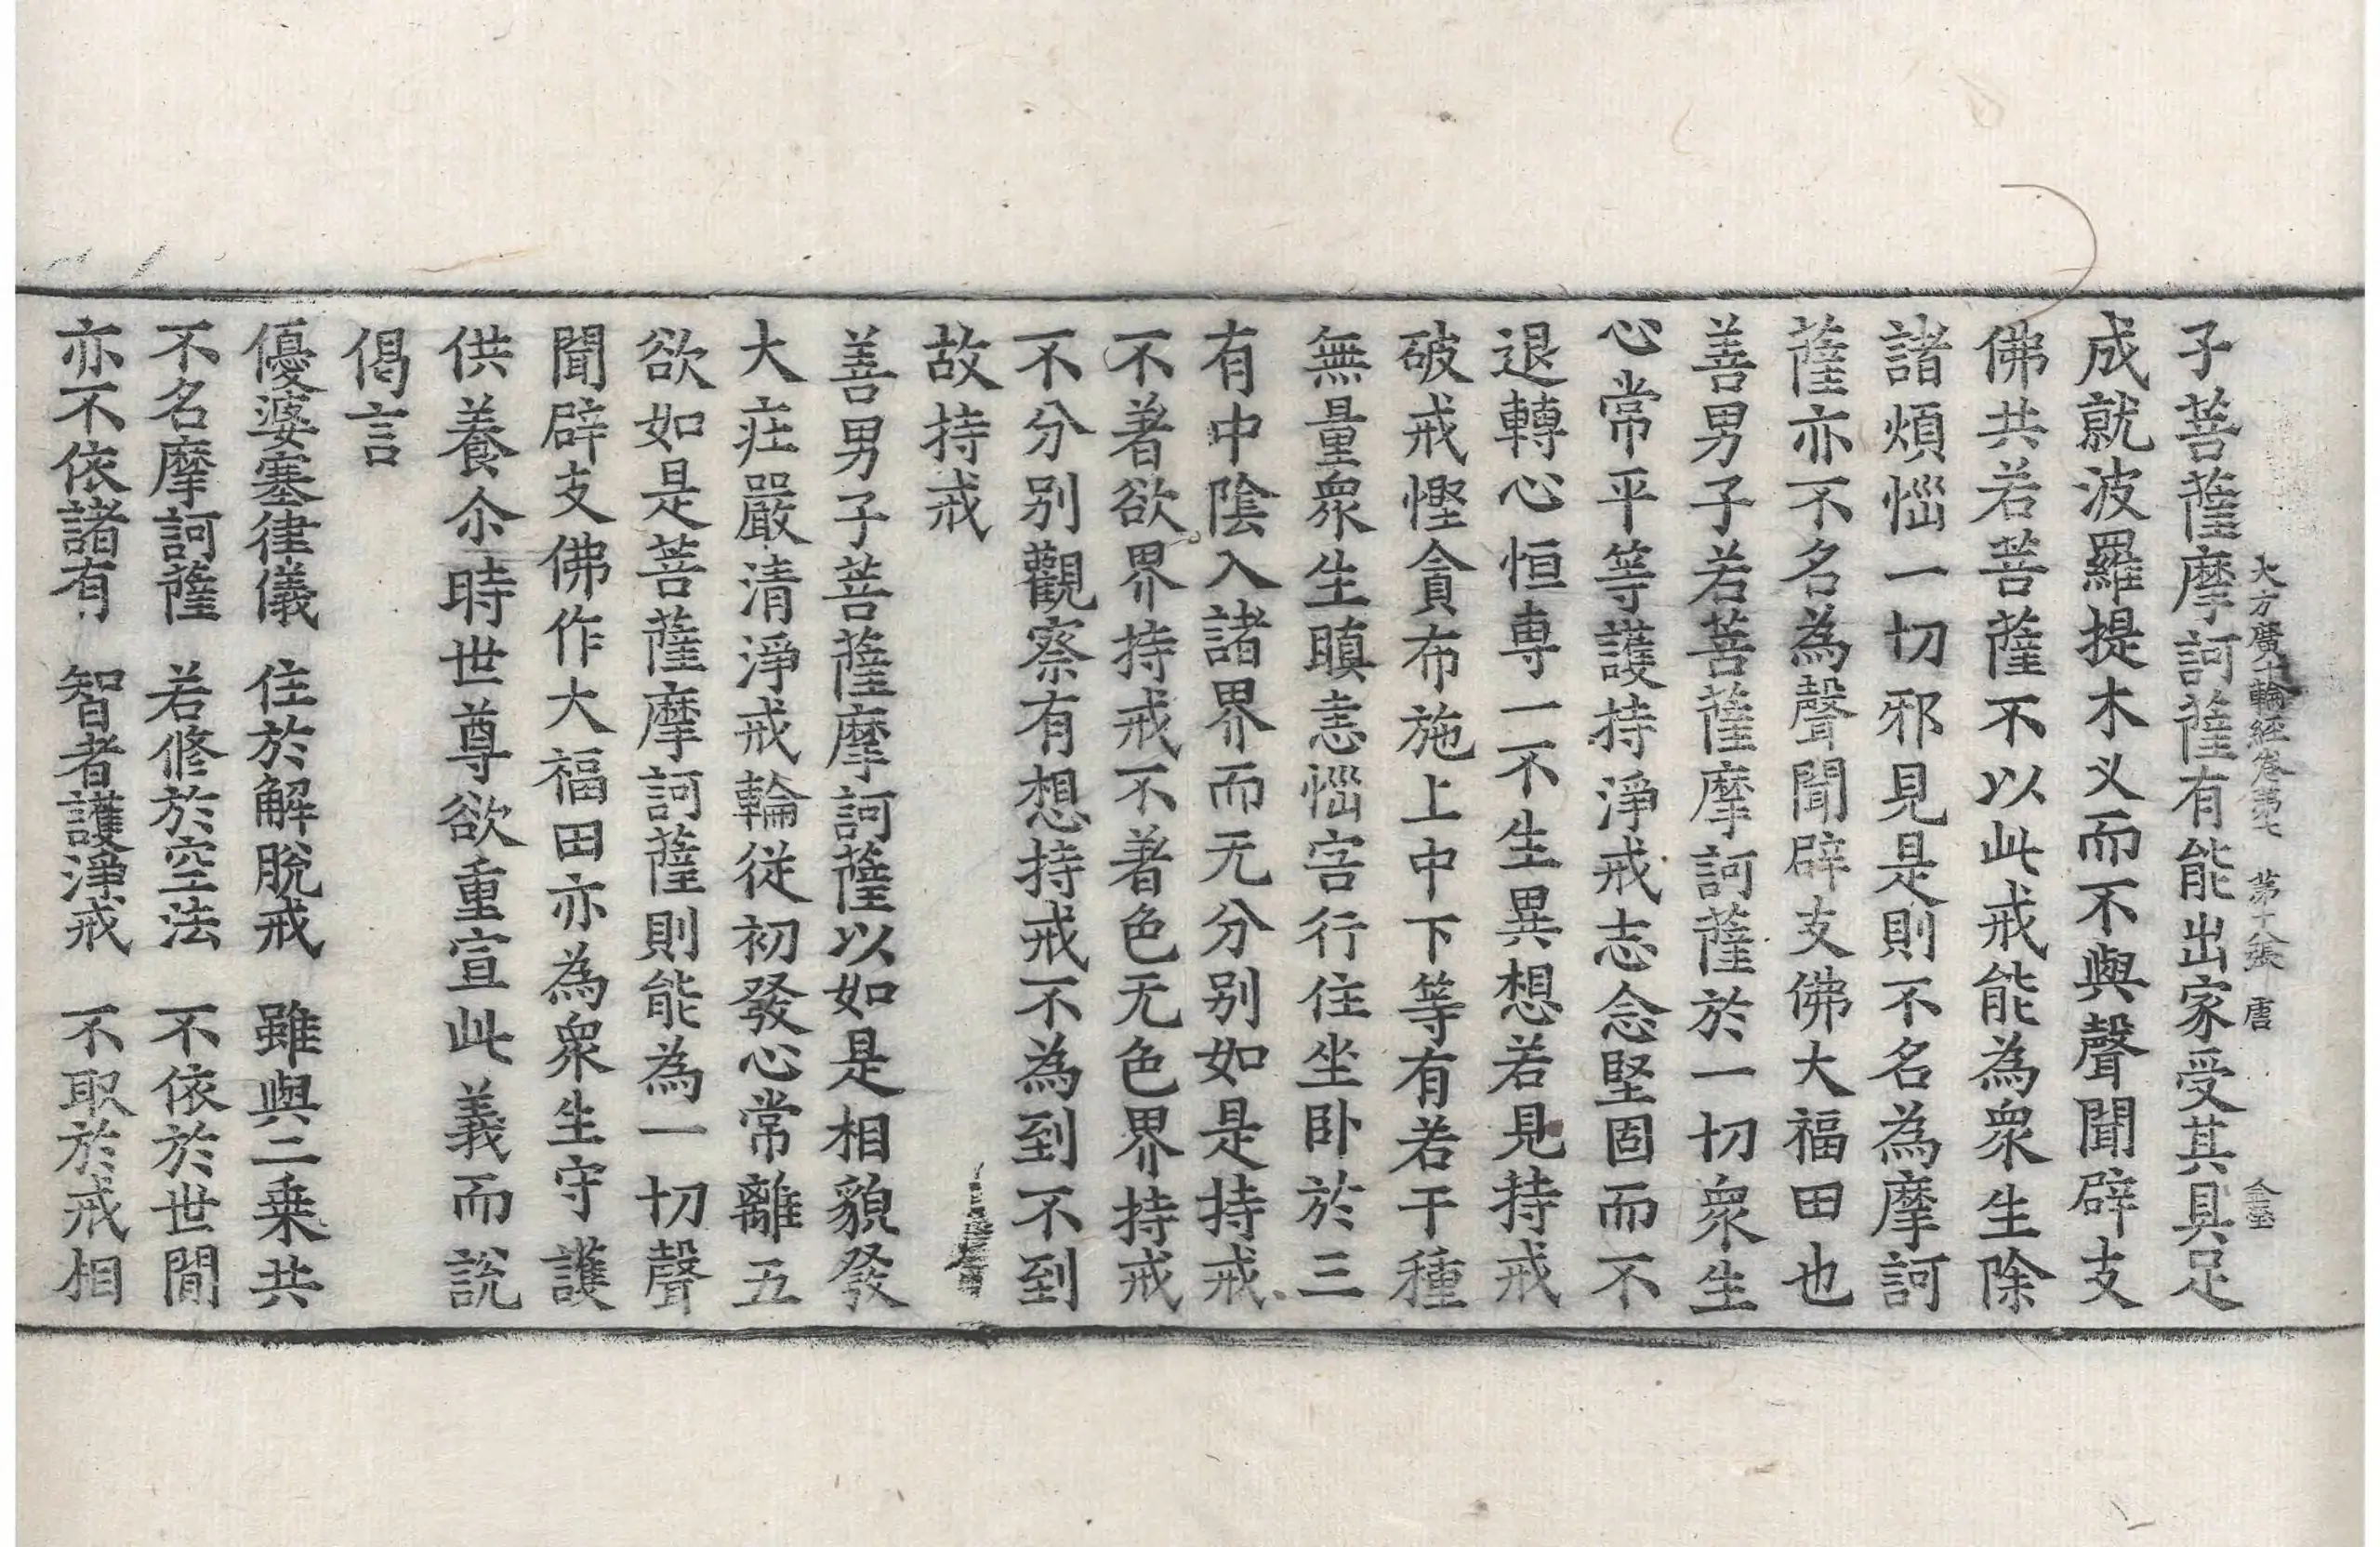 大方廣十輪經卷第七 第十八張 唐
子菩薩摩訶薩有能出家受其具足
成就波羅提木叉而不與聲聞辟支
佛共若菩薩不以此戒能為眾生除
諸煩惱一切邪見是則不名為摩訶
薩亦不名為聲聞辟支佛大福田也
善男子若菩薩摩訶薩於一切眾生
心常平等護持淨戒志念堅固而不
退轉心恒專一不生異想若見持戒
破戒慳貪布施上中下等有若干種
無量眾生瞋恚惱害行住坐臥於三
有中陰入諸界而无分別如是持戒
不著欲界持戒不著色无色界持戒
不分別觀察有想持戒不為到不到
故持戒
善男子菩薩摩訶薩以如是相貌發
大莊嚴清淨戒輪從初發心常離五
欲如是菩薩摩訶薩則能為一切聲
聞辟支佛作大福田亦為眾生守護
供養尒時世尊欲重宣此義而說
偈言
優婆塞律儀 住於解脫戒 雖與二乘共
不名摩訶薩 若修於空法 不依於世間
亦不依諸有 智者護淨戒 不取於戒相